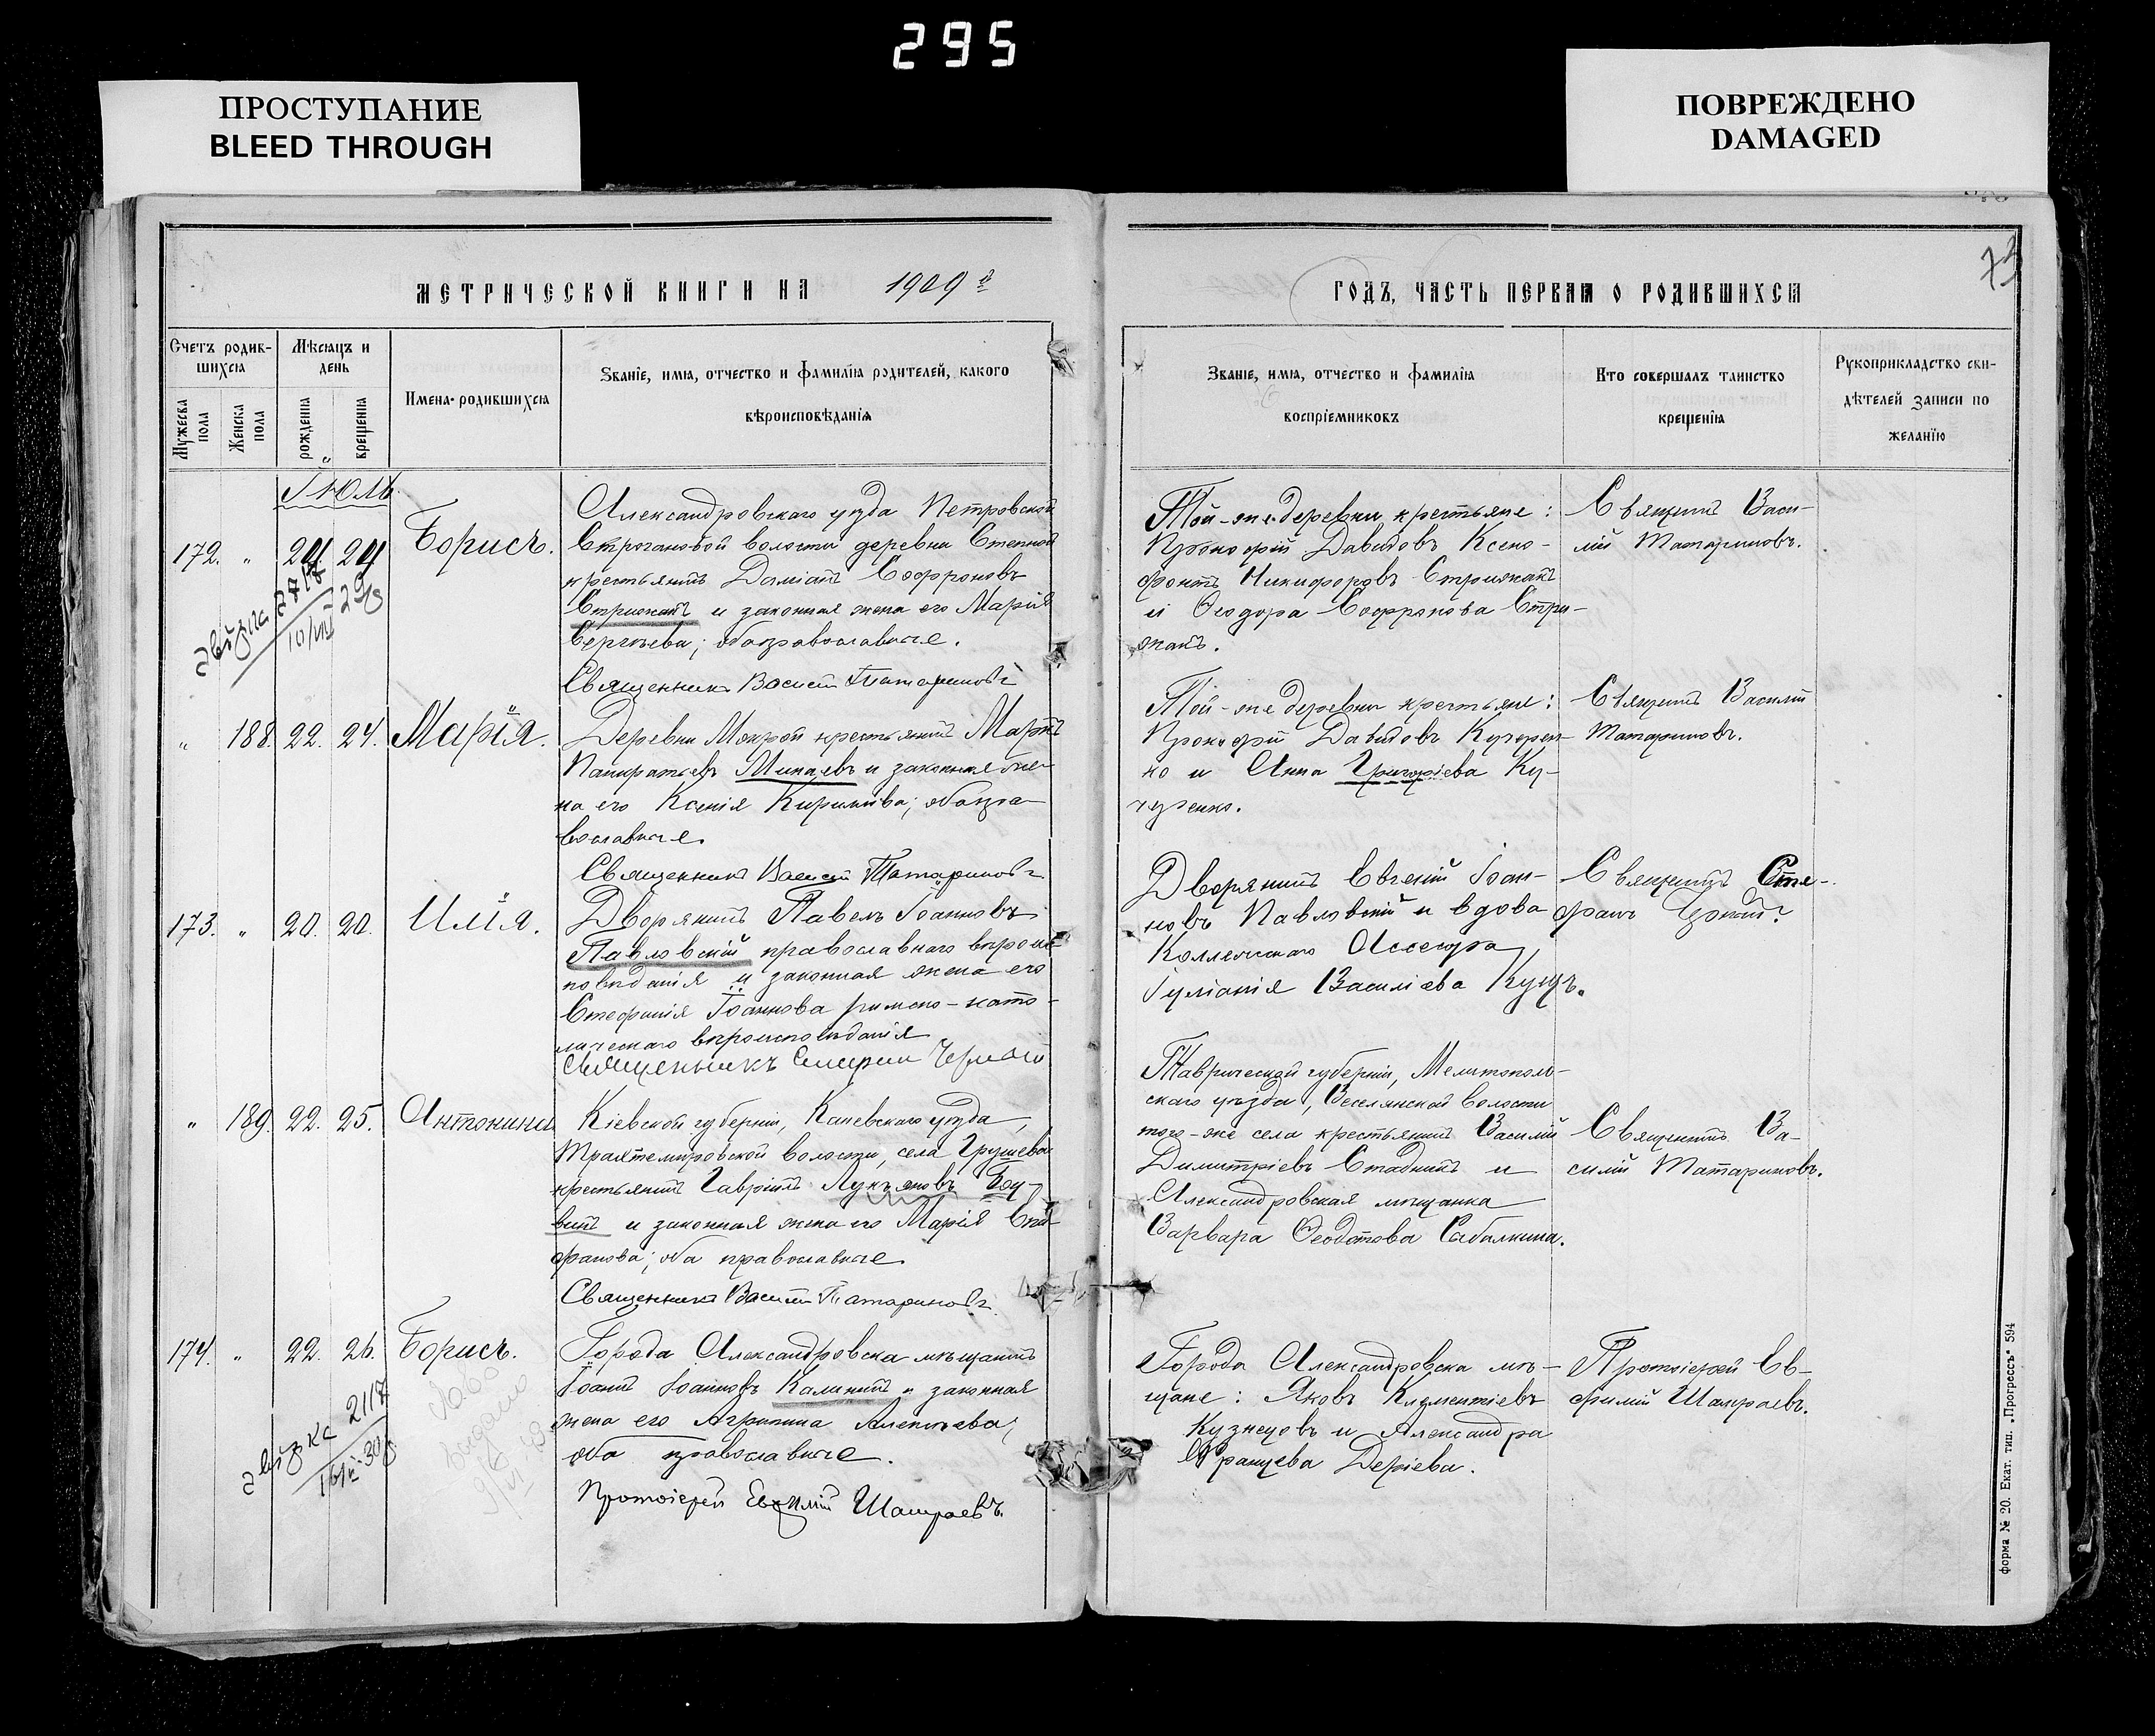 295
ПРОСТУПАНИЕ
BLEED THROUGH
ПОВРЕЖДЕНО
DAMAGED
73
МЕТРИЧЕСКОЙ КНИГИ НА 1909й
ГОДЪ, ЧАСТЬ ПЕРВАЯ О РОДИВШИХСЯ
Счетъ родив-
шихся
Мужеска
пола
Женска
пола
Мѣсяцъ и
день
рожденія
крещенія
Имена родившихся
Званіе, имя, отчество и фамилія родителей, какого
вѣроисповѣданія
Званіе, имя, отчество и фамилія
воспріемниковъ
Кто совершалъ таинство
крещенія
Рукоприкладство сви-
дѣтелей записи по
желанію
Іюль
172. " 24 24 Борисъ.
Александровскаго уѣзда Петровской
Строгановой волости деревни Степной
крестьянинъ Даміанъ Софроновъ
Стрижакъ и законная жена его Марія
Сергѣева; оба православные.
Священникъ Василій Татариновъ
Той-же деревни крестьяне:
Прокофій Давидовъ Ксено-
фонтъ Никифоровъ Стрижакъ
и Ѳеодора Софронова Стри-
жакъ.
Священникъ Васи-
лій Татариновъ.
" 188. 22. 24. Марія.
Деревни Мокрой крестьянинъ
Панкратьевъ Минаевъ и законная же-
на его Ксенія Кирилова; оба пра-
вославные.
Священникъ Василій Татариновъ
Той-же деревни крестьяне:
Прокофій Давидовъ Кучерен-
ко и Анна Григоріева Ку-
черенко.
Священникъ Василій
Татариновъ.
173. " 20. 20. Илія.
Дворянинъ Павелъ Іоанновъ
Павловскій православнаго вѣроис-
повѣданія и законная жена его
Стефанія Іоаннова римско-като-
лическаго вѣроисповѣданія
Священникъ
Дворянинъ Евгеній Іоан-
новъ Павловскій и вдова
Коллежскаго Ассесора
Іуліанія Василіева Кущъ.
Священникъ Сте-
фанъ
" 189. 22. 25. Антонина
Кіевской губерніи, Каневскаго уѣзда,
Трахтемировской волости, села Грушева
крестьянинъ Гавріилъ Лукьяновъ
и законная жена его Марія Сте-
фанова; оба православные.
Священникъ Василій Татариновъ
Таврической губерніи, Мелитополь-
скаго уѣзда, Веселянской волости
того-же села крестьянинъ Василій
Димитріевъ Стадникъ и
Александровская мѣщанка
Варвара Ѳеодотова Сабалкина.
Священникъ Ва-
силій Татариновъ.
174. " 22. 26. Борисъ.
Города Александровска мѣщанинъ
Іоаннъ Іоанновъ Калининъ и законная
жена его Агрипина Алексѣева;
оба православные.
Протоіерей Евѳимій Шамраевъ.
Города Александровска мѣ-
щане: Яковъ Климентіевъ
Кузнецовъ и Александра
Францева Деріева.
Протоіерей Ев-
фимій Шамраевъ.
форма № 20. Екат. тип. „Прогрессъ“ 594